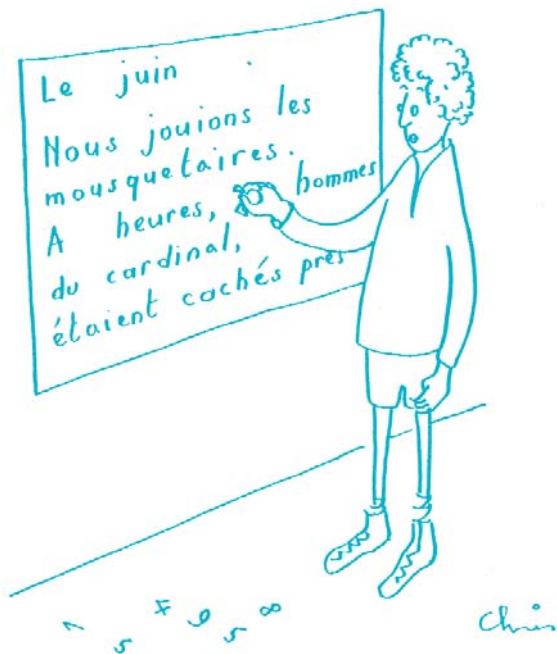 Le juin .
Nous jouions les
mousquetaires.
A heures, hommes
du cardinal,
étaient cachés près
1 5 4 9 5 8
Chris